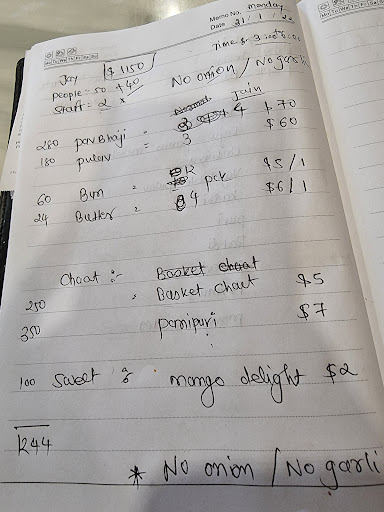 Memo No. Monday
Date 21 / 1 /
Jay $ 1150
People - 50 + 40
Staff = 2
No onion / No garli
Jain
280 pav Bhaji = 4 $ 70
180 pulav = 3 $ 60
60 Bun = 12 pck $5 / 1
24 Butter = 4 $6 / 1
Chaat :- Basket chaat
250 Basket chaat $5
350 panipuri $7
100 Sweet mango delight $2
1244
* No onion / No garli